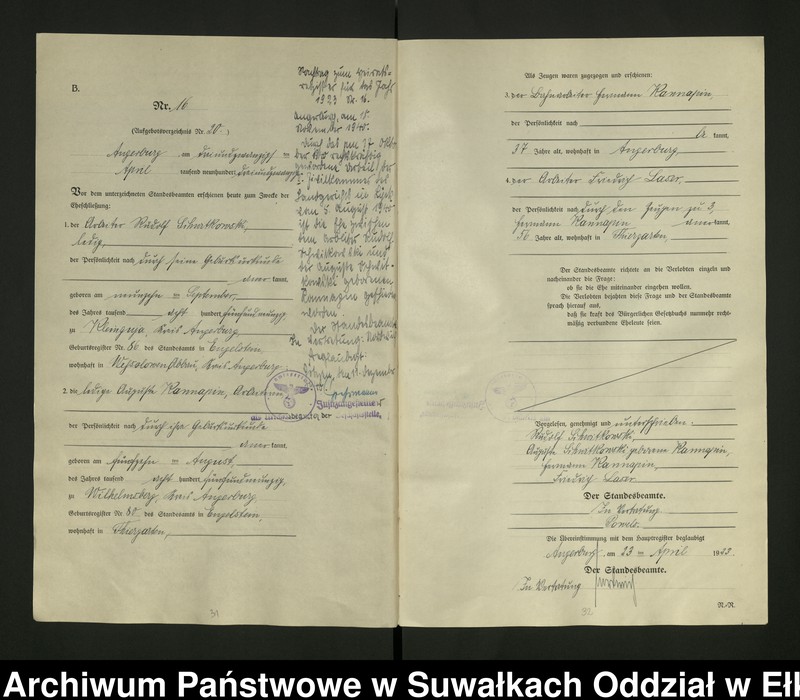 B.
Nr. 16
(Aufgebotsverzeichnis Nr. 20.)
Angerburg am dreiundzwanzigsten
April tausend neunhundert dreiundzwanzig
Vor dem unterzeichneten Standesbeamten erschienen heute zum Zwecke der
Eheschließung:
1. der Arbeiter Rudolf Schwitkowski,
ledig,
der Persönlichkeit nach durch seine Geburtsurkunde
kannt,
geboren am neunzehn ten September
des Jahres tausend acht hundert fünfundneunzig
zu Kreis Angerburg
Geburtsregister Nr. 86 des Standesamts in Engelstein,
wohnhaft in Kreis Angerburg
2. die ledige Auguste Kannapin, Arbeiterin
der Persönlichkeit nach durch ihre Geburtsurkunde
kannt,
geboren am fünfzehn ten August,
des Jahres tausend acht hundert fünfundneunzig,
zu Wilhelmsberg, Kreis Angerburg
Geburtsregister Nr. 80 des Standesamts in Engelstein,
wohnhaft in Thiergarten,
Nachtrag zum Heirats-
register für das Jahr
1923 Nr. 16.
Angerburg, am 18.
November 1940.
Durch das am 27. Okto-
ber 1940 rechtskräftig
gewordene Urteil der
Zivilkammer des
Landgerichts in
vom 5. August 1940
ist die Ehe zwischen
dem Arbeiter Rudolf
Schwitkowski und
der Auguste Schwit-
kowski geborenen
Kannapin geschieden
worden.
Der Standesbeamte
In Vertretung:
Beglaubigt:
Justizangestellter
als Urkundsbeamter der Geschäftsstelle.
31
Als Zeugen waren zugezogen und erschienen:
3. der Bahnarbeiter Hermann Kannapin,
der Persönlichkeit nach
be kannt,
37 Jahre alt, wohnhaft in Angerburg,
4. der Arbeiter Friedrich Laser,
der Persönlichkeit nach durch den Zeugen zu 3,
Hermann Kannapin kannt,
56 Jahre alt, wohnhaft in Thiergarten,
Der Standesbeamte richtete an die Verlobten einzeln und
nacheinander die Frage:
ob sie die Ehe miteinander eingehen wollen.
Die Verlobten bejahten diese Frage und der Standesbeamte
sprach hierauf aus,
daß sie kraft des Bürgerlichen Gesetzbuchs nunmehr recht-
mäßig verbundene Eheleute seien.
Vorgelesen, genehmigt und unterschrieben:
Rudolf Schwitkowski,
Auguste Schwitkowski geborene Kannapin,
Hermann Kannapin,
Friedrich Laser
Der Standesbeamte.
In Vertretung
Die Übereinstimmung mit dem Hauptregister beglaubigt
Angerburg, am 23 ten April 1923.
Der Standesbeamte.
In Vertretung
32
R./R.
Archiwum Państwowe w Suwałkach Oddział w Eł